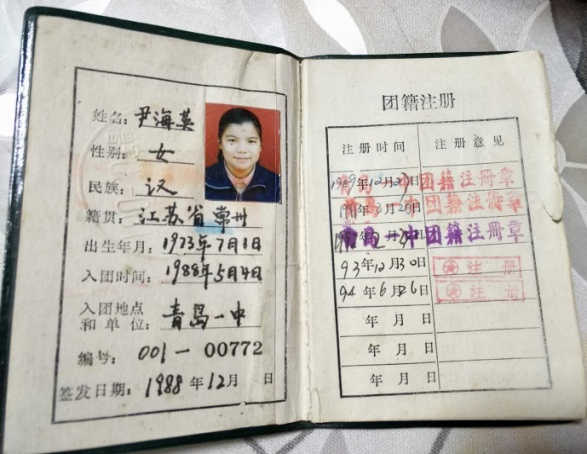 姓名：尹海英
性别：女
民族：汉
籍贯：江苏省常州
出生年月：1973年7月1日
入团时间：1988年5月4日
入团地点
和单位：青岛一中
编号：001—00772
签发日期：1988年12月 日
团籍注册
注册时间 注册意见
1989年12月2日 青岛一中团籍注册章
年3月2日 青岛一中团籍注册章
青岛一中团籍注册章
93年12月30日 注册
94年6月26日 注册
年 月 日
年 月 日
年 月 日